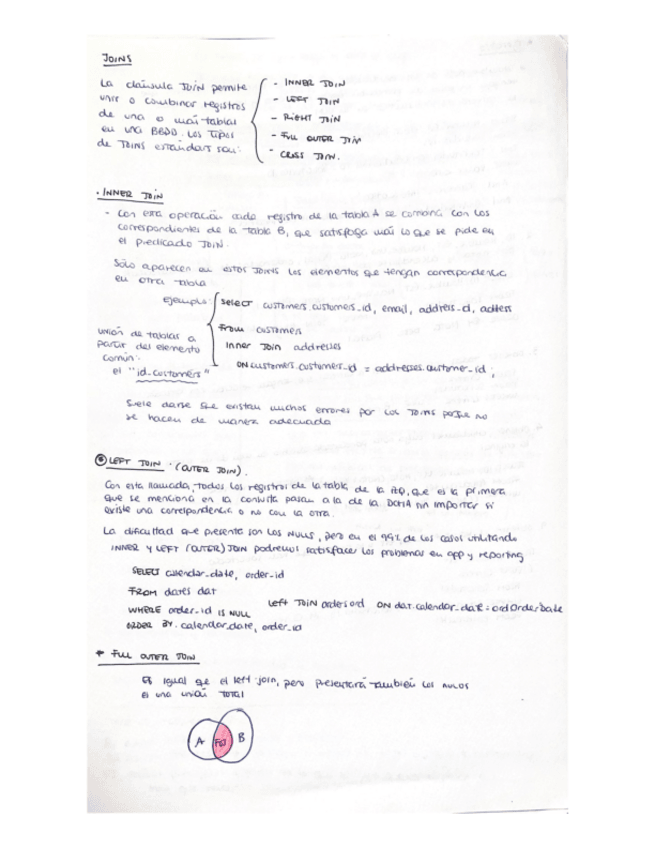 JOINS
La cláusula JOIN permite
unir o combinar registros
de una o más tablas
en una BBDD. Los tipos
de JOINS estándars son:
- INNER JOIN
- LEFT JOIN
- RIGHT JOIN
- FULL OUTER JOIN
- CROSS JOIN.
· INNER JOIN
- Con esta operación cada registro de la tabla A se combina con los
correspondientes de la tabla B, que satisfaga más lo que se pide en
el predicado JOIN.
Sólo aparecen en estos JOINS los elementos que tengan correspondencia
en otra tabla
Ejemplo:
Select customers.customers_id, email, address_id, address
From customers
Inner Join addresses
ON customers.customers_id = addresses.customer_id ;
unión de tablas a
partir del elemento
común:
el "id_costomers"
Suele darse que existan muchos errores por los JOINS porque no
se hacen de manera adecuada
LEFT JOIN · (OUTER JOIN).
Con esta llamada, todos los registros de la tabla de la izq, que es la primera
que se menciona en la consulta pasan a la de la sin importar si
existe una correspondencia o no con la otra.
La dificultad que presenta son los NULLS, pero en el 99% de los casos utilizando
INNER y LEFT (OUTER) JOIN podremos satisfacer los problemas en app y reporting
SELECT calendar_date, order_id
FROM dates dat
WHERE order_id IS NULL Left JOIN orders ord ON dat.calendar_date = ord.OrderDate
ORDER BY. calendar_date, order_id
* FULL OUTER JOIN
Es igual que el left join, pero presentará también los nulos
es una unión TOTAL
A FOJ B